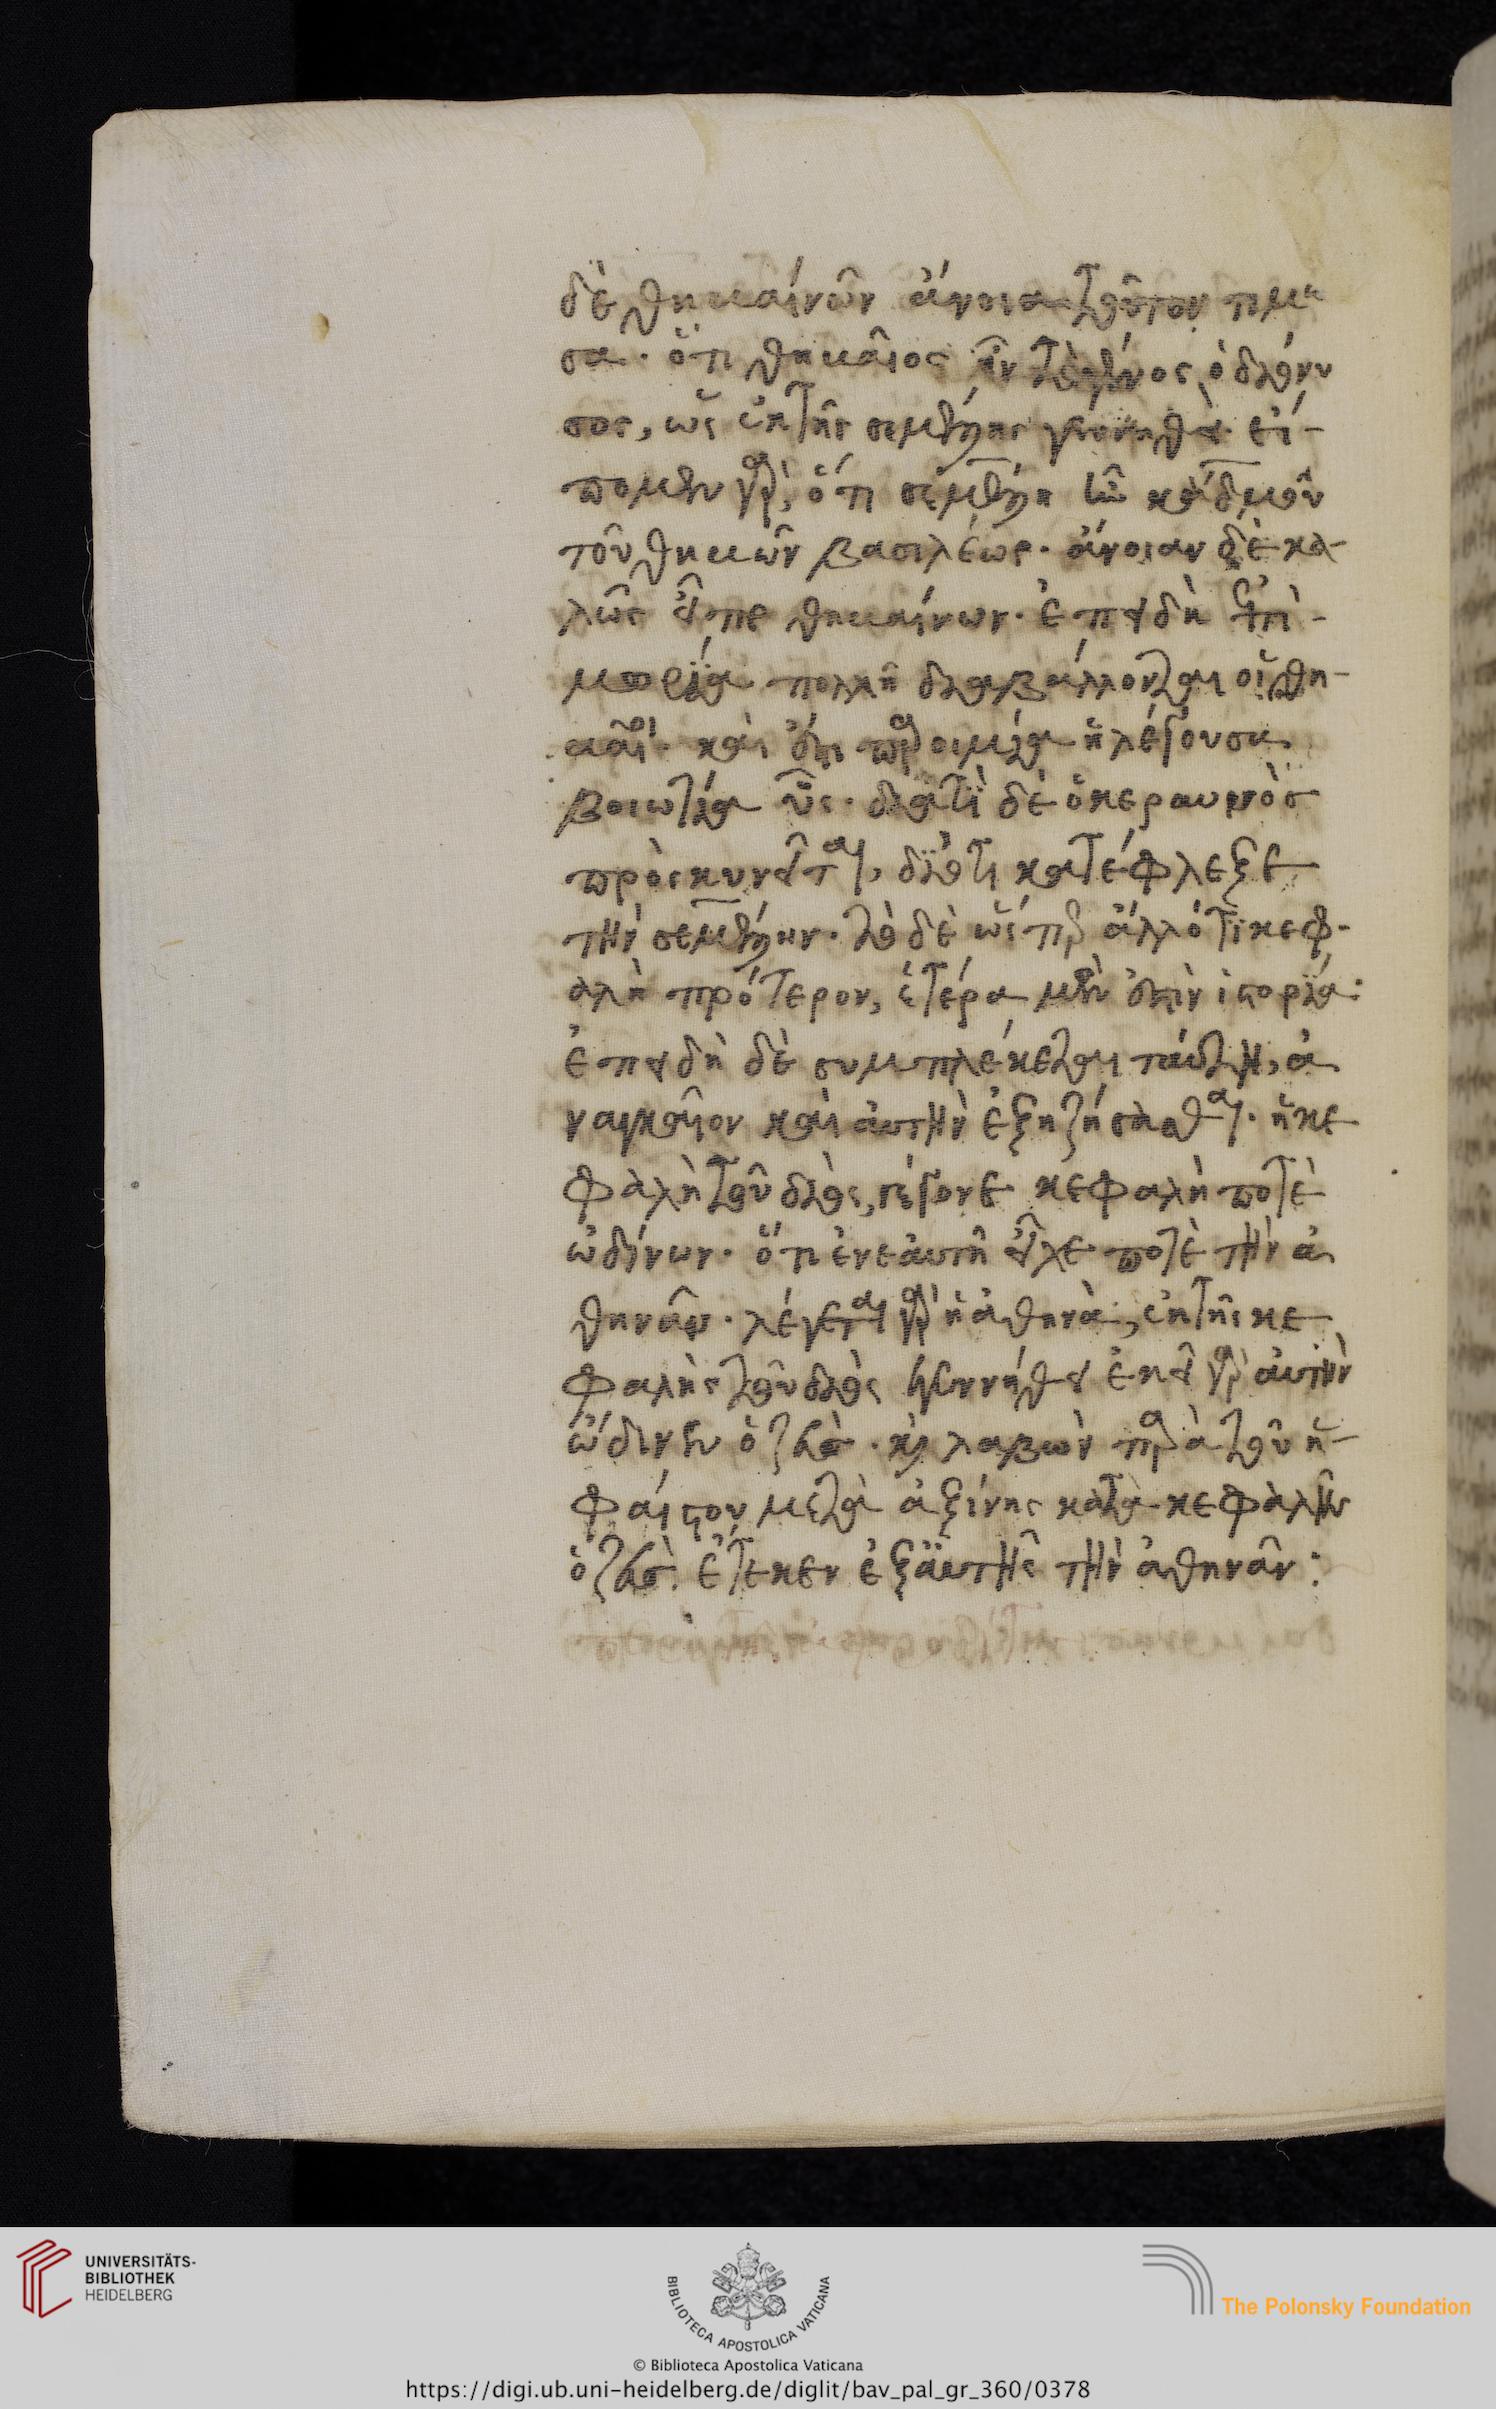 δὲ θηβαίνων ἄνοια τοῦτον τιμῶ
σα· ὅτι θηβαῖος ὁ διόνυ
σος, ὡς ἐκ τῆς σεμέλης γεννηθεὶς· εἴ-
πομεν γὰρ, ὅτι σεμέλη ἦν κάδμου
τοῦ θηβῶν βασιλέως· ἄνοιαν δὲ κα-
λῶς εἶπε θηβαίνων· ἐπειδὴ ἐπὶ
μωρία πολλῇ διαβάλλονται οἱ θη-
βαῖοι· καὶ ἔστι παροιμία ἡ λέγουσα
βοιωτία ὗς· διατὶ δὲ ὁ κεραυνὸς
πρὸσκυνεῖται, διότι κατέφλεξε
τὴν σεμέλην· τὸ δὲ ὥσπερ ἄλλό τι κεφ-
αλὴ πρότερον, ἑτέρα μὲν ἐστὶν ἱστορία:
ἐπειδὴ δὲ συμπλέκεται ταύτη, ἀ
ναγκαῖον καὶ αὐτὴν ἐξηγήσασθαι· ἡ κε
φαλὴ τοῦ διὸς, γέγονε κεφαλὴ ποτὲ
ὠδίνων· ὅτι ἐνεαυτῆ εἶχε ποτὲ τὴν ἀ
θηνᾶν· λέγεται γὰρ ἡ ἀθηνὰ, ἐκ τῆς κε
φαλῆς τοῦ διὸς γεννηθεῖ ἐκεῖ γὰρ αὐτὴν
ὤδινεν ὁ ζεὺς· καὶ λαβὼν παρὰ τοῦ ἡ-
φαίστου μετὰ ἀξίνης κατὰ κεφαλὴν
ὁ ζεὺς. ἔτεκεν ἐξαὐτῆς τὴν ἀθηνᾶν:
UNIVERSITÄTS-
BIBLIOTHEK
HEIDELBERG
BIBLIOTECA APOSTOLICA VATICANA
The Polonsky Foundation
© Biblioteca Apostolica Vaticana
https://digi.ub.uni-heidelberg.de/diglit/bav_pal_gr_360/0378